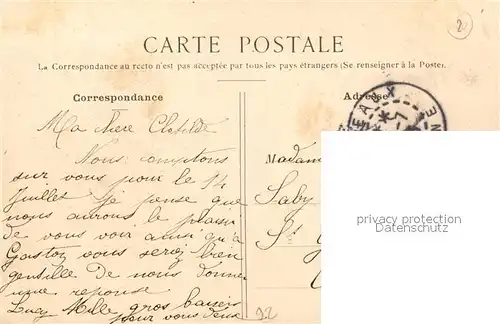 20
CARTE POSTALE
La Correspondance au recto n'est pas acceptée par tous les pays étrangers (Se renseigner à la Poste).
Correspondance
Adresse
Ma chere Clotilde
Nous comptons
sur vous pour le 14
Juillet je pense que
nous aurons le plaisir
de vous voir ainsi qu'à
Gaston vous seriez bien
gentille de nous donner
une reponse
Lucy Mille gros baisers
pour vous deux
Madam
Saby
St
92
privacy protection